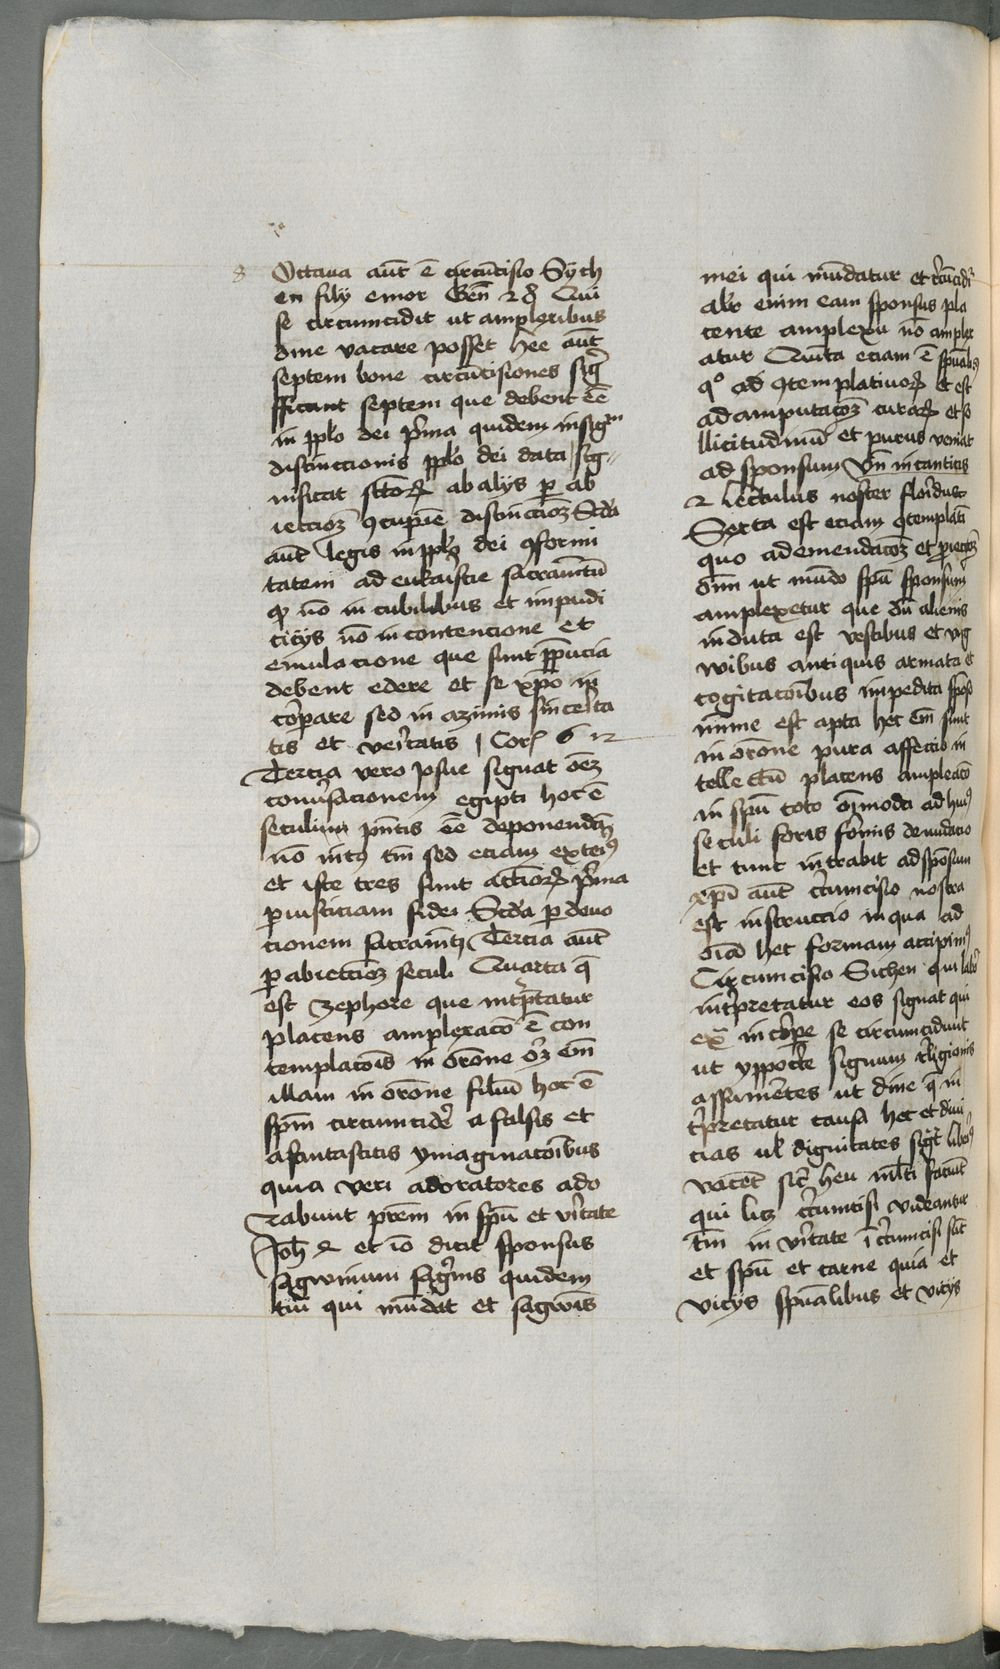 8 Octaua aut̄ ē circūcisio Sych
en filij emor Gen̄ 28 Qui
se circumcidit ut amplexibus
dine vacare posset hee aut̄
septem bone circūcisiones sig
fficant septem que debent ēē
in pplo dei p̄ma quidem in sig
distinccionis pplo dei data sig
nificat sc̄toꝝ ab alijs per ab
ieccioꝫ ꝯcupīe distinccioꝫ Scd̄a
aut̄ legis in pplo dei ꝯformi
tatem ad eukaristie sacramētū
ꝙ nō in cubilibus et impudi
citijs nō in contencione et
emulacione que sunt p̄pucia
debent edere et se xp̄o in
corpare sed in azimis sincerita
tis et veritatis 1 Cor
Tercia vero Josue signat oēꝫ
conuersacionem egipti hoc ē
seculum p̄ntis ēē deponendā
nō intꝰ tm̄ sed eciam exteriꝰ
et iste tres sunt actioꝝ p̄ma
ꝑ iusticiam fidei Scd̄a ꝑ deuo
tionem sacramēti Tercia aut̄
ꝑ abieccioꝫ seculi Quarta q̄
est zephore que int̄p̄tatur
placens amplexaco ē con
templatōis in or̄one oꝫ em̄
illam in or̄one filiū hoc ē
spm̄ circumcidere a falsis et
a fantasticis ymaginacōibus
quia veri adoratores ado
rabunt pr̄em in spū et v̄itate
Joh 4 et iō dicit sponsus
sagwinum sagwis quidem
tm̄ qui mūdat et sagwis
mei qui mūdatur et circūcidit
alr̄ enim eam sponsus pla
cente amplexu nō amplex
atur Quīta eciam ē sp̄ualis
qº ad ꝯtemplatiuoꝝ et est
ad amputacoꝫ curaꝝ et so
llicitudinū et purus veniat
ad sponsum Vn̄ in canticis
2 lectulus noster floridus
Sexta est eciam ꝯtemplatī
quo ad emendacoꝫ et
oīm ut mūdo spū sponsum
amplexetur que dū alienis
induta est vestibus et
antiquis armata et
cogitacoībus impedita sposo
mīme est apta hec em̄ sunt
in or̄one pura affectio in
tellectū placens amplexaco
in spū toto oīmoda ad huiꝰ
seculi foris formis denudacio
et tunc intrabit ad sponsum
xp̄i aut̄ circumcisio nostra
est instruccio in qua ad
oīa hec formam accipimꝰ
Circumcisio Sichen qui labor
int̄pretatur eos signat qui
ex in corpe se circumcidunt
ut ypocrite signum religionis
assumentes ut dine q̄ in
t̄pretatur causa hec et diui
cias ul̓ dignitates liberiꝰ
vacent sic̄ heu ml̄ti faciūt
qui licꝫ circumcisi videantur
tm̄ in v̄itate īcircumcisi sūt
et spū et carne quia et
vicijs sp̄ualibus et vicijs